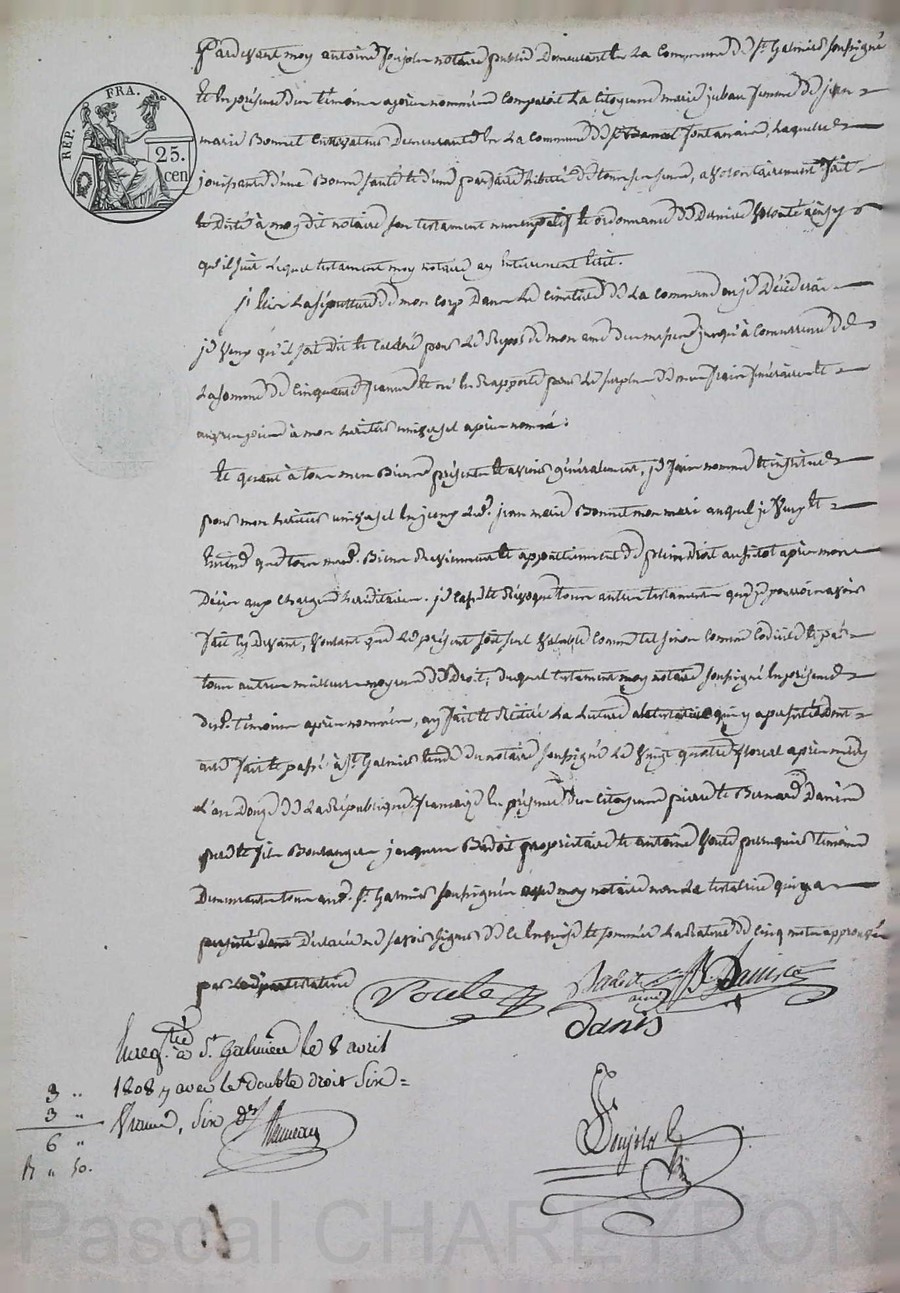 REP. FRA.
25.
cen
Pardevant moy antoine Pujolas notaire public Demeurant En La Commune de St. Galmier soussigné
Et En présence des témoins après nommés comparoit La Citoyenne marie jubau femme de jean
marie Bonnet Demeurant En La Commune de St. fontanaise, Laquelle
jouissante d'une Bonne santé Et d'une parfaite Liberté de tous ses sens, a Volontairement fait
Et Dicté à moy dit notaire son testament nuncupatif Et ordonnance de Derniere Volonté ainsy
qu'il suit Lequel testament moy notaire ay Entierement Ecrit.
j'Elis La sépulture de mon corps Dans Le cimetiere de La Commune ou je Décéderai
je Veux qu'il soit Dit Et Célébré pour Le Repos de mon ame Des messes jusqu'à Concurrence de
La somme de Cinquante francs Et m'En Rapporte pour Le surplus de mes frais funéraires Et
à mon héritier universel après nommé.
Et quant à tous mes Biens présents Et avenir généralement, je fais nomme Et institue
pour mon héritier universel Led. jean marie Bonnet mon mari auquel je Veux Et
Entend que tous mesd. Biens Reviennent Et appartiennent de plein Droit aussitot après mon
Décès aux charges héréditaires. je Casse Et Révoque tous autres testaments que je pourrois avoir
fait cy Devant, Voulant que Le présent soit seul Valable Comme tel sinon comme Codicile Et par
tous autres meilleurs moyens de Droit, Duquel testament moy notaire soussigné En présence
desd. témoins après nommés, ay fait Et Réitéré La Lecture à La testatrice qui y a persisté Dont
acte fait Et passé à St. Galmier Etude du notaire soussigné Le Vingt quatre floreal après midy
L'an Douze de La République française En présence des Citoyens pierre Et Bernard Danis
pere Et fils Boulangers jacques Badoit propriétaire Et antoine perruquier témoins
Demeurants tous aud. St. Galmier soussignés avec moy notaire non La testatrice qui y a
persisté Déclaré ne savoir signer de ce Enquise Et sommée La Rature de cinq mots approuvée
par Lad. testatrice
Badoit B. Danis
ainé
Danis
Enregtré à St. galmier le 8 avril
1808 y avec le double droit Six
francs, Six
3 "
3 "
6 "
" 60.
Pujolas
Pascal CHAREYRON